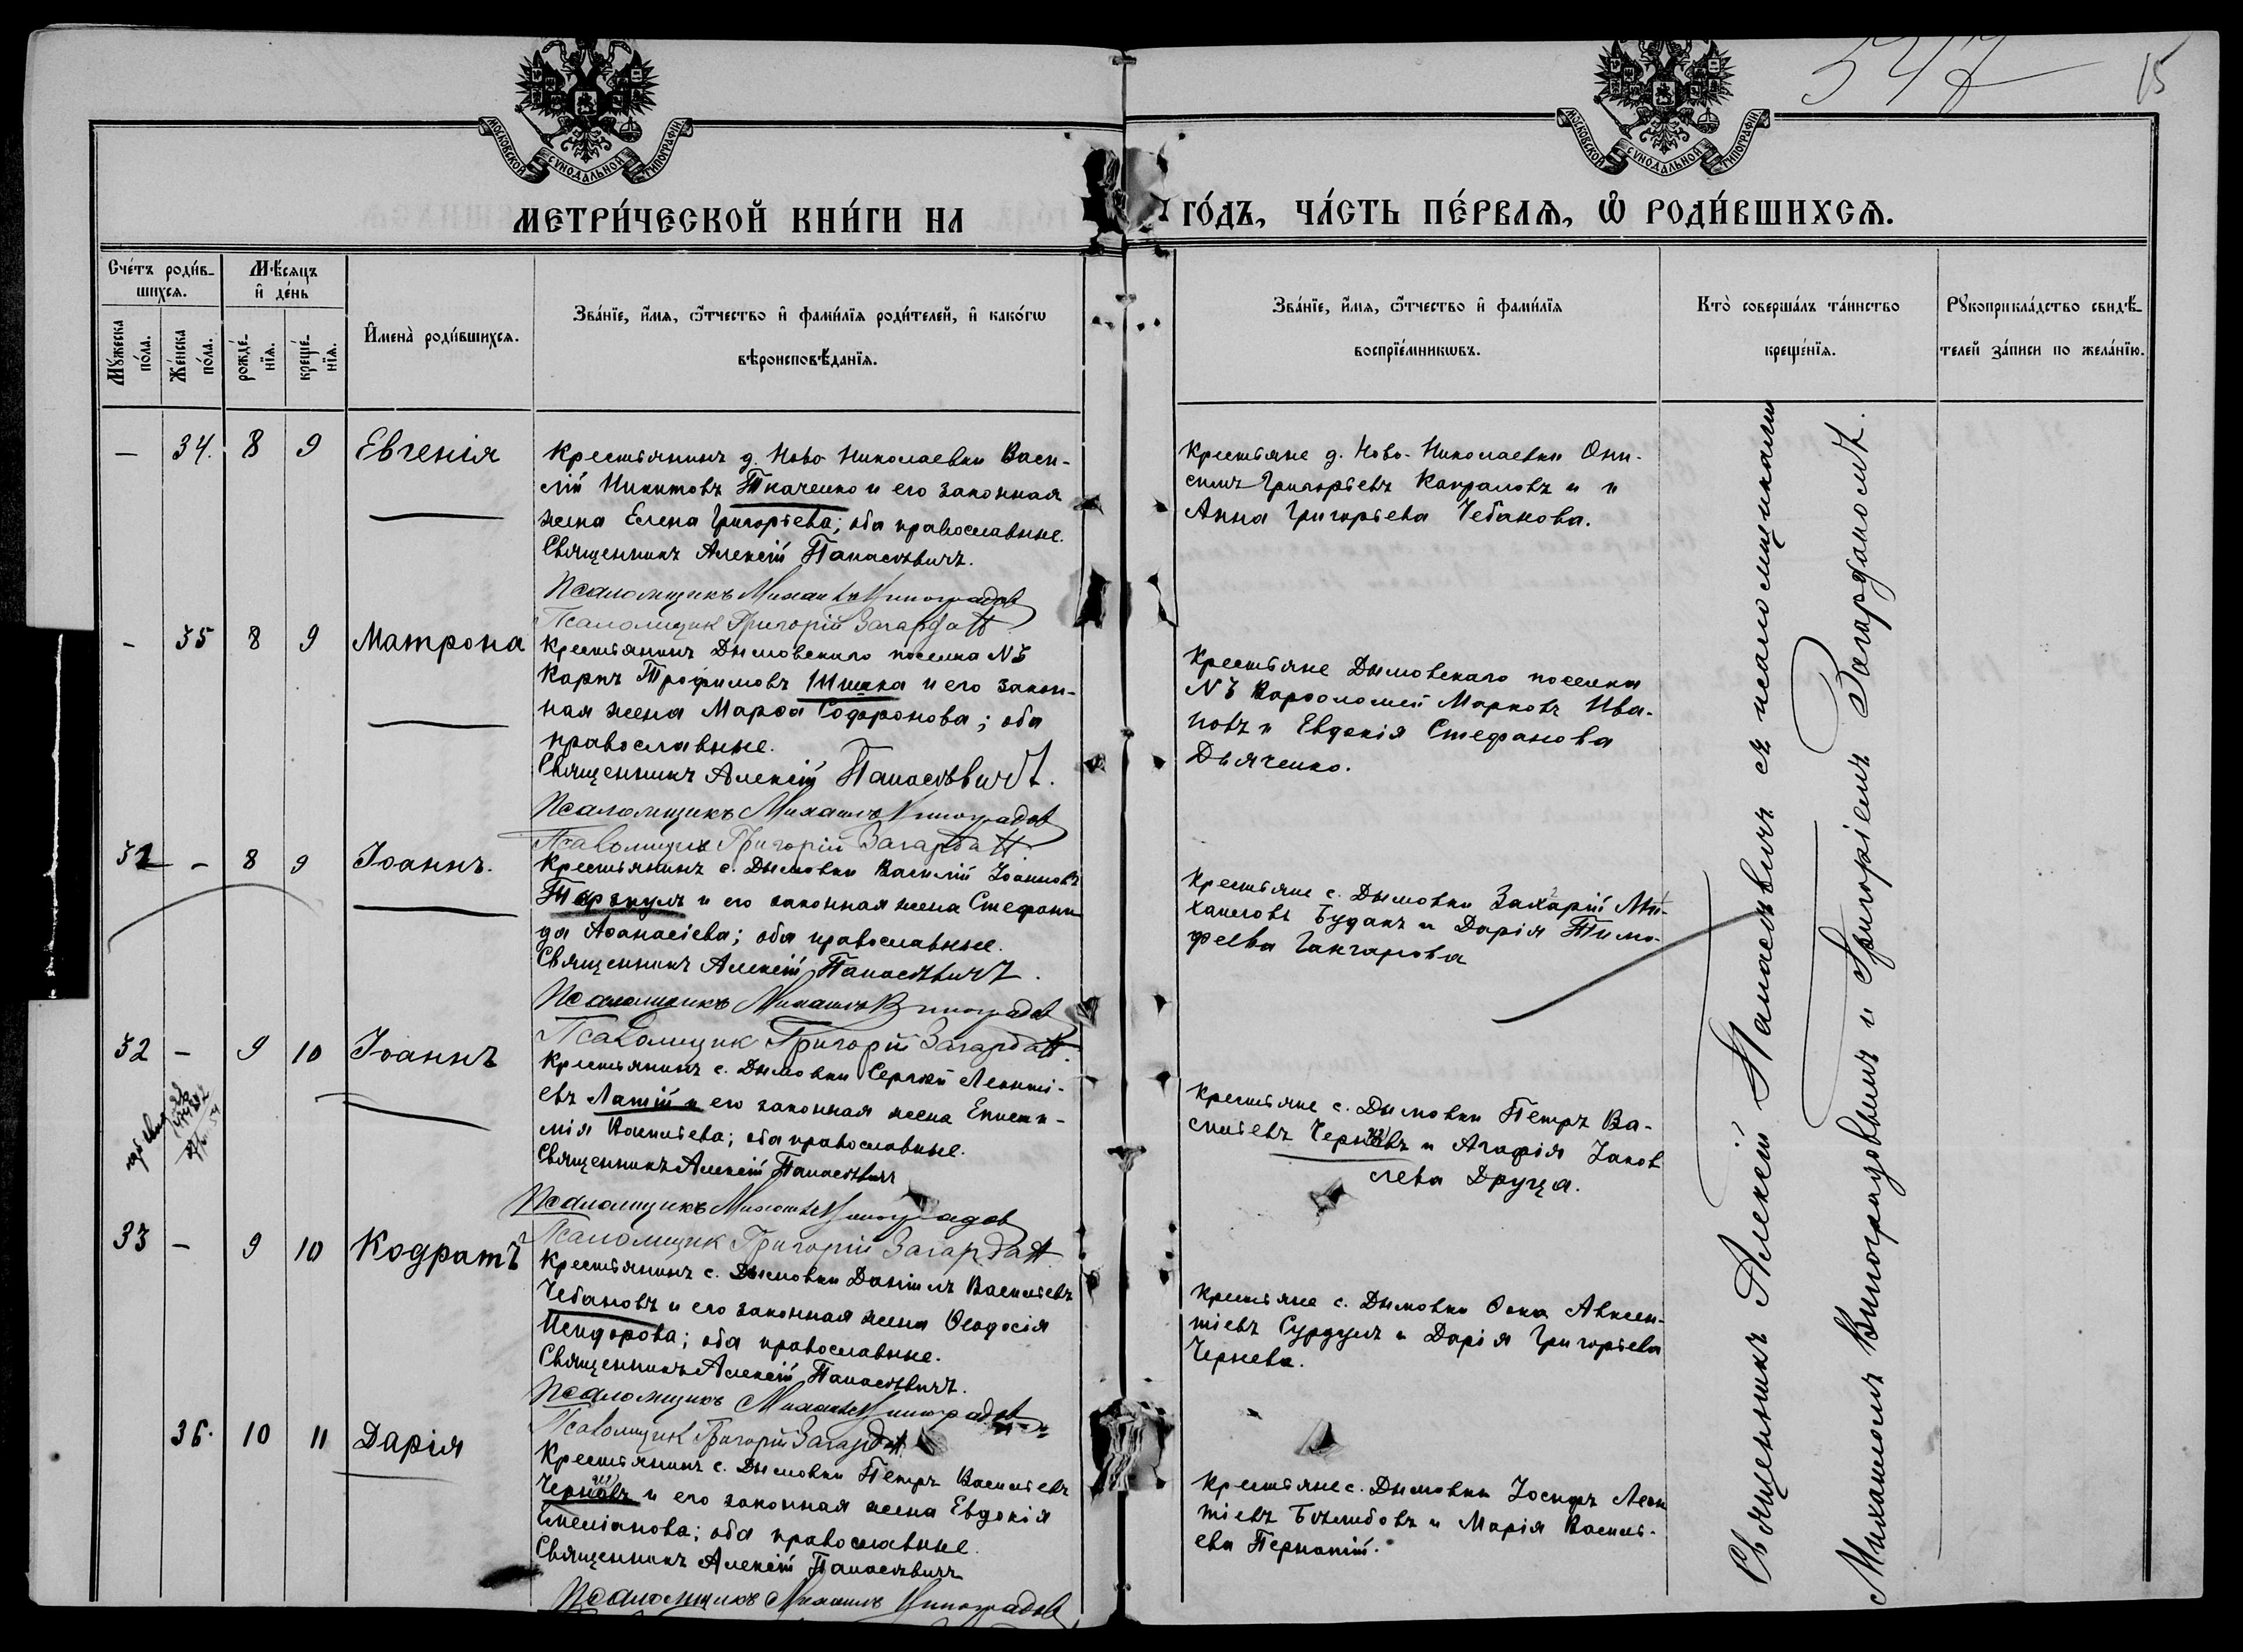 347
15
МОСКОВСКОЙ СѴНОДАЛЬНОЙ ТИПОГРАФІИ.
МОСКОВСКОЙ СѴНОДАЛЬНОЙ ТИПОГРАФІИ.
МЕТРИ́ЧЕСКОЙ КНИ́ГИ НА
ГО́ДЪ, ЧА́СТЬ ПЕ́РВАѦ, Ѡ҆ РОДИ́ВШИХСѦ.
Сче́тъ роди́в-
шихсѧ.
Мѣ́сѧцъ
и҆ де́нь
Мꙋ́жеска
по́ла.
Же́нска
по́ла.
рожде́-
нїѧ.
креще́-
нїѧ.
И҆мена̀ роди́вшихсѧ.
Зва́нїе, и҆́мѧ, ѻ҆́тчество и҆ фами́лїѧ роди́телей, и҆ како́гѡ
вѣроисповѣ́данїѧ.
Зва́нїе, и҆́мѧ, ѻ҆́тчество и҆ фами́лїѧ
воспрїе́мникѡвъ.
Кто̀ соверша́лъ та́инство
креще́нїѧ.
Рꙋкоприкла́дство свидѣ́-
телей за́писи по жела́нїю.
— 34. 8 9 Евгенія
Крестьянинъ д. Ново Николаевки Васи-
лій Никитовъ Ткаченко и его законная
жена Елена Григорьева; оба православные.
Священникъ Алексій Панасѣвичъ.
Псаломщикъ Михаилъ Виноградовъ
Псаломщик Григорій Загарда
Крестьяне д. Ново-Николаевки Они-
симъ Григорьевъ Капраловъ и и
Анна Григорьева Чебанова.
- 35 8 9 Матрона
Крестьянинъ Дымовскаго поселка №
Карпъ Трофимовъ Шишка и его закон-
ная жена Марѳа Софронова; оба
православные.
Священникъ Алексій Панасѣвичъ.
Псаломщикъ Михаилъ Виноградовъ
Псаломщик Григорій Загарда
Крестьяне Дымовскаго поселка
№ Варѳоломей Марковъ Ива-
новъ и Евдокія Стефанова
Дьяченко.
31 - 8 9 Іоаннъ.
Крестьянинъ с. Дымовки Василій Іоанновъ
и его законная жена Стефани-
да Аѳанасіева; оба православные.
Священникъ Алексій Панасѣвичъ.
Псаломщикъ Михаилъ Виноградовъ
Псаломщик Григорій Загарда
Крестьяне с. Дымовки Захарій Ми-
хаиловъ Буданъ и Дарія Тимо-
феева Ганчарова
32 - 9 10 Іоаннъ
Крестьянинъ с. Дымовки Сергѣй Леонті-
евъ Латій и его законная жена Еписти-
мія Васильева; оба православные.
Священникъ Алексій Панасѣвичъ
Псаломщикъ Михаилъ Виноградовъ
Псаломщик Григорій Загарда
Крестьяне с. Дымовки Петръ Ва-
сильевъ и Агафія Іаков
лева Друца.
33 - 9 10 Кодратъ
Крестьянинъ с. Дымовки Даніилъ Васильевъ
Чебановъ и его законная жена Ѳеодосія
Исидорова; оба православные.
Священникъ Алексій Панасѣвичъ.
Псаломщикъ Михаилъ Виноградовъ
Псаломщик Григорій Загарда
Крестьяне с. Дымовки Ѳока Авксен-
тіевъ Сурдулъ и Дарія Григорьева
Чернева.
36. 10 11 Дарія
Крестьянинъ с. Дымовки Петръ Васильевъ
и его законная жена Евдокія
Емеліанова; оба православные.
Священникъ Алексій Панасѣвичъ
Псаломщикъ Михаилъ Виноградовъ
Крестьяне с. Дымовки Іосифъ Леон
тіевъ и Марія Василь-
ева
Священникъ Алексій Панасѣвичъ съ псаломщиками
Михаиломъ Виноградовымъ и Григоріемъ Загардакомъ.